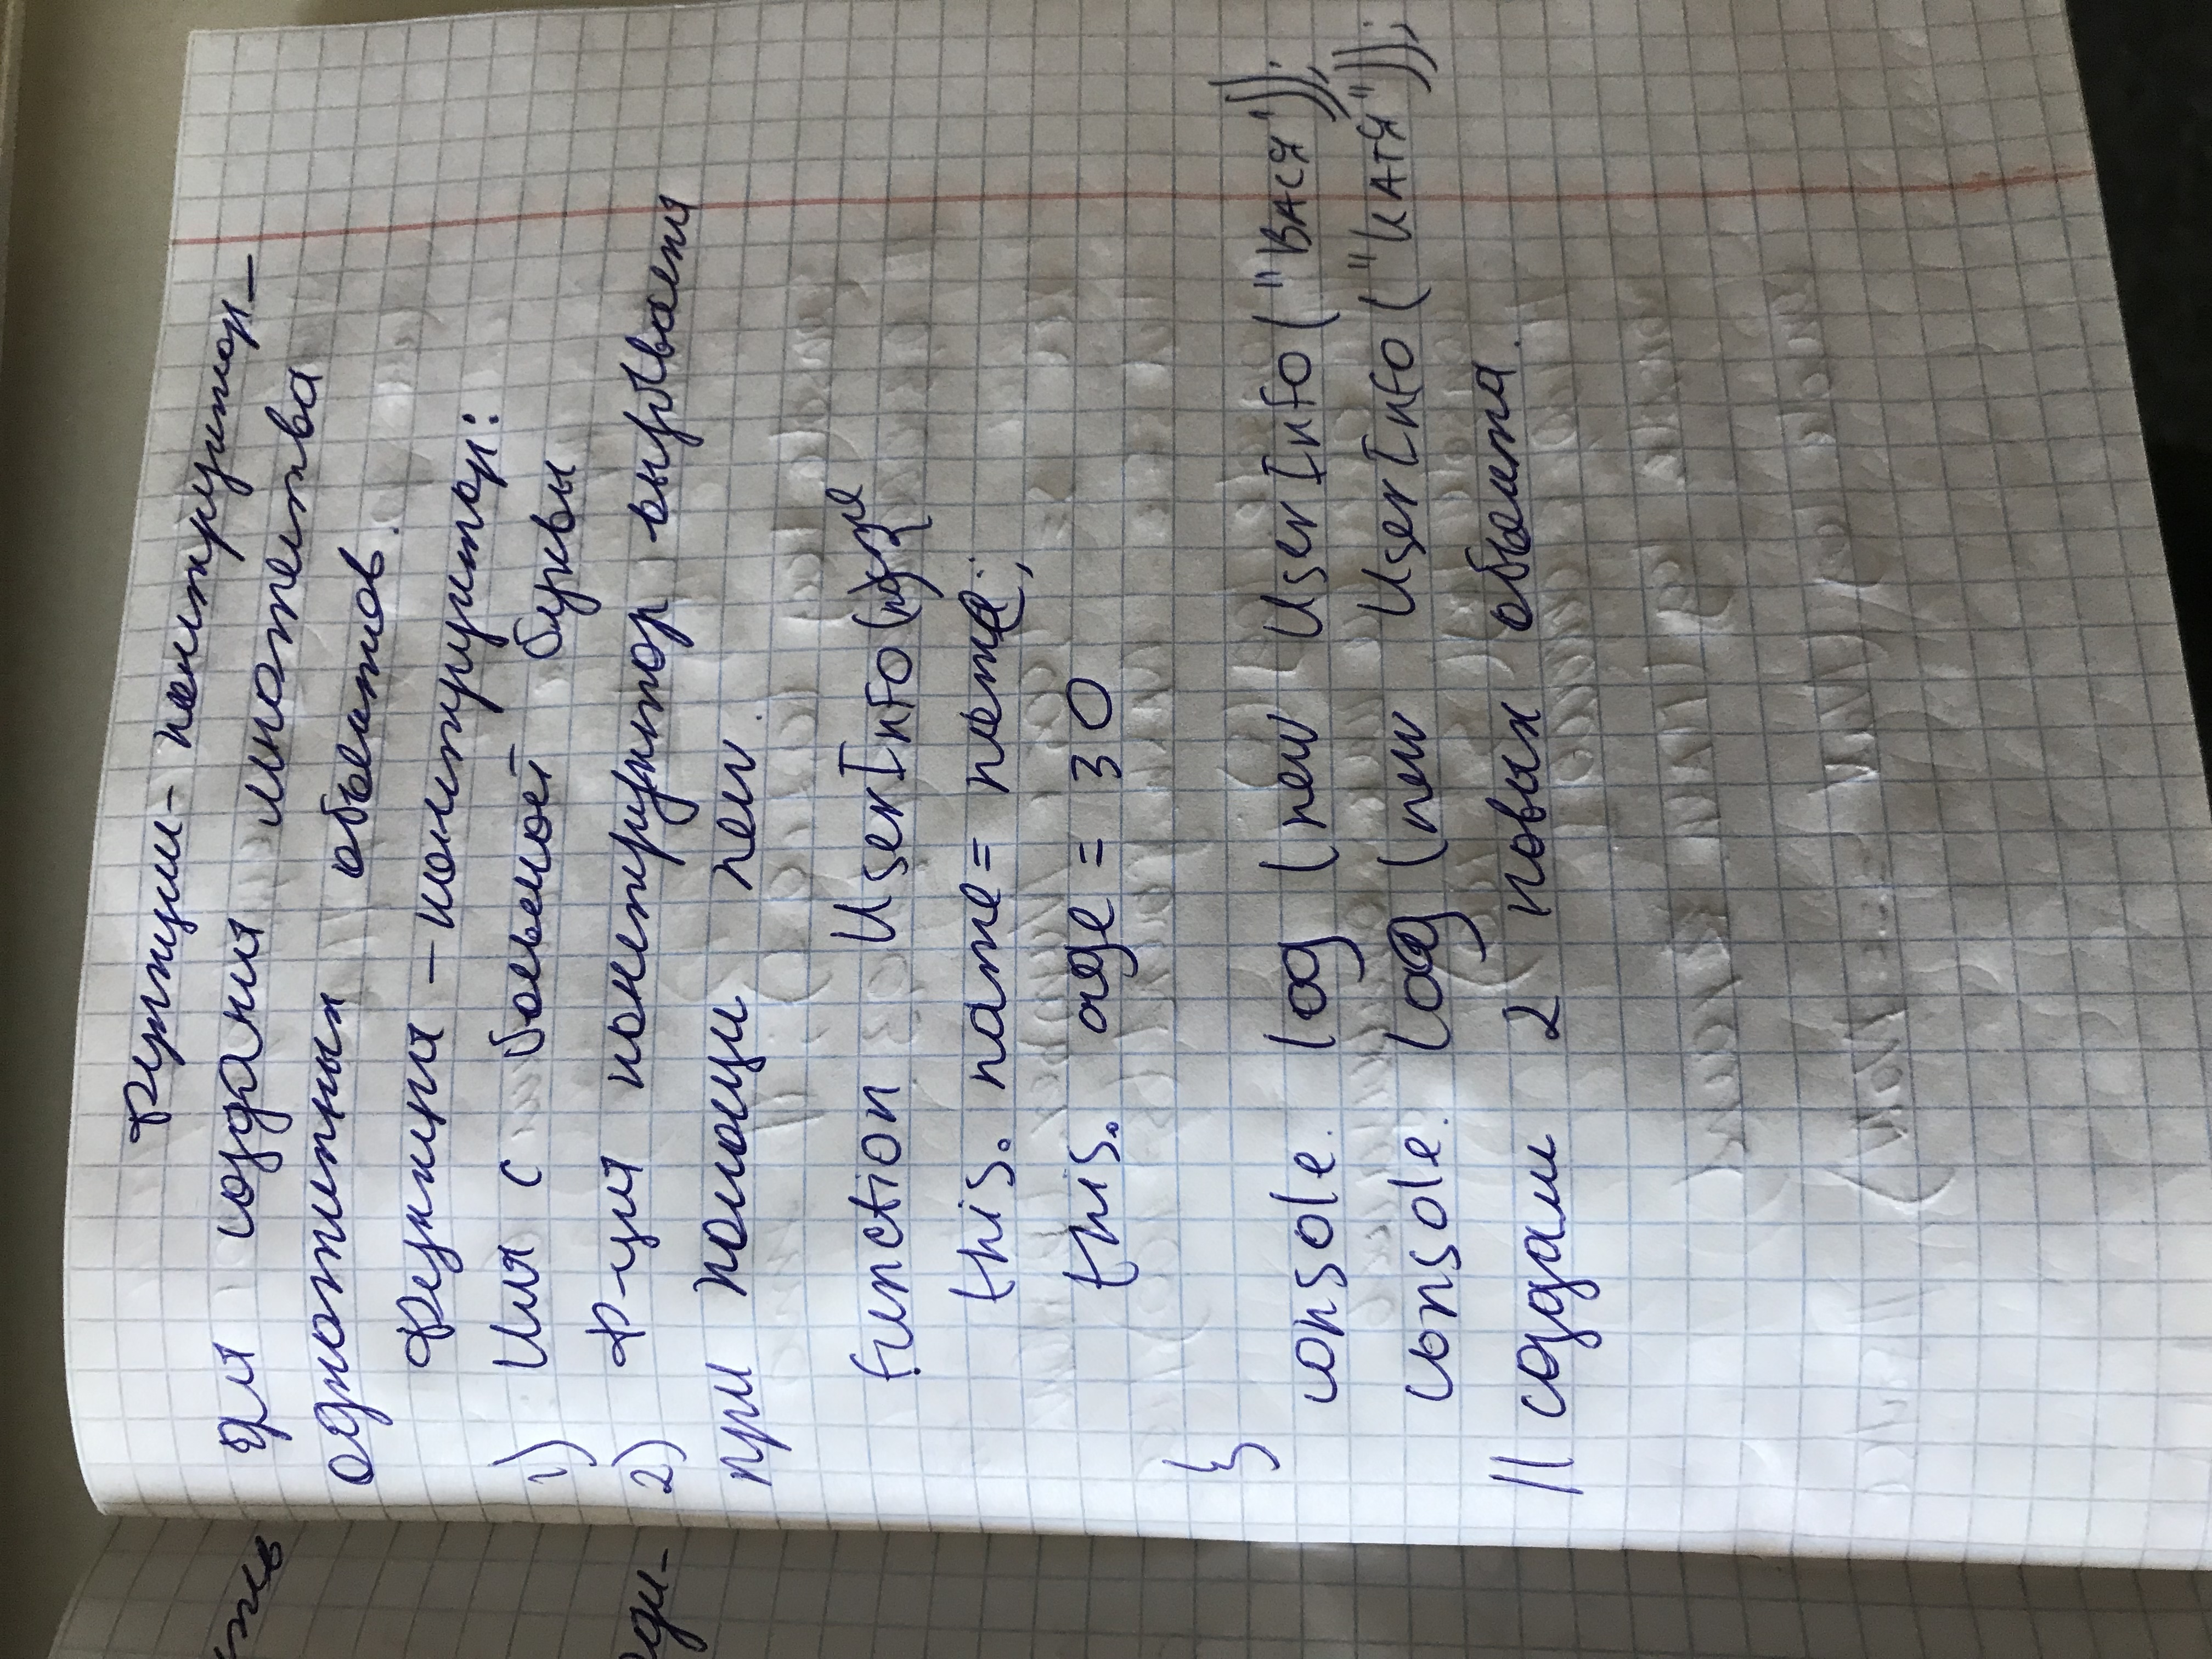 Функции - конструктор -
для создания множества
однотипных объектов.
Функция - конструктор:
1) Имя с большой буквы
2) Ф-ция конструктор вызывается
при помощи new.
function UserInfo(name){
this. name = name;
this. age = 30
}
console. log (new UserInfo("ВАСЯ"));
console. log (new UserInfo("КАТЯ"));
// создали 2 новых объекта.